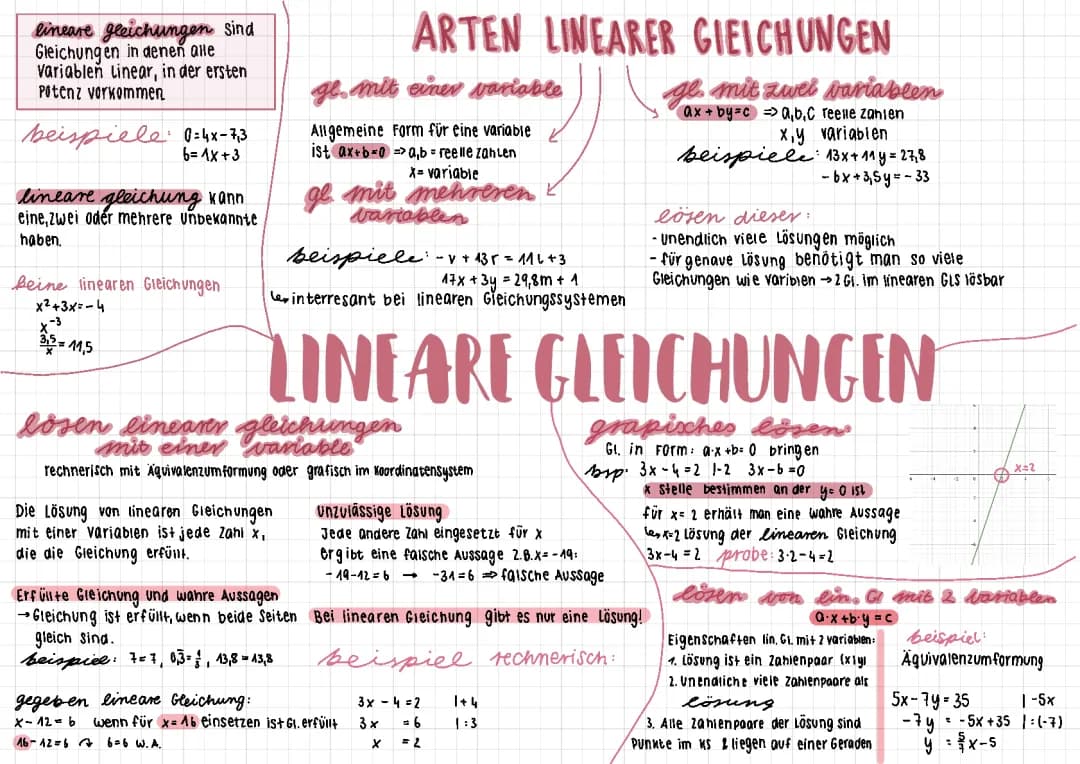 lineare gleichungen sind
Gleichungen in denen alle
Variablen Linear, in der ersten
Potenz vorkommen
beispiele: 0=4x-7,3
6=1x+3
lineare gleichung kann
eine, zwei oder mehrere Unbekannte
haben.
keine linearen Gleichungen
x²+3x=-4
x⁻³
3,5/x = 11,5
ARTEN LINEARER GLEICHUNGEN
gl. mit einer variable
Allgemeine Form für eine variable
ist ax+b=0 => a,b = reelle zahlen
x= variable
gl. mit mehreren
variablen
beispiele: -v + 13r = 11t+3
17x + 3y = 29,8m + 1
interresant bei linearen Gleichungssystemen
gl. mit zwei variablen
ax + by=c => a,b,c reelle zahlen
x,y variablen
beispiele: 13x+11y=27,8
-6x+3,5y=-33
lösen dieser:
- unendlich viele Lösungen möglich
- für genaue Lösung benötigt man so viele
Gleichungen wie varibien → 2 Gl. im linearen GLS lösbar
LINEARE GLEICHUNGEN
lösen linearer gleichungen
mit einer variable
rechnerisch mit Äquivalenzumformung oder grafisch im Koordinatensystem
Die Lösung von linearen Gleichungen
mit einer Variablen ist jede Zahl x,
die die Gleichung erfüllt.
Erfüllte Gleichung und wahre Aussagen
→ Gleichung ist erfüllt, wenn beide Seiten
gleich sind.
beispiel: 7=7, 0,3̅=1/3, 13,8=13,8
gegeben lineare Gleichung:
x-12=6 wenn für x=16 einsetzen ist Gl. erfüllt
16-12=6 6=6 W.A.
Unzulässige Lösung
Jede andere Zahl eingesetzt für x
ergibt eine falsche Aussage z.B. x=-19:
-19-12=6 → -31=6 => falsche Aussage
Bei linearen Gleichung gibt es nur eine Lösung!
beispiel rechnerisch:
3x-4=2 |+4
3x =6 |:3
x =2
grapisches lösen:
Gl. in Form: a·x+b=0 bringen
bsp. 3x-4=2 |-2 3x-6=0
x Stelle bestimmen an der y=0 ist
für x=2 erhält man eine wahre Aussage
x=2 Lösung der linearen Gleichung
3x-4=2 probe: 3·2-4=2
x=2
lösen von lin. Gl mit 2 variablen
a·x+b·y=c
Eigenschaften lin. Gl. mit 2 variablen:
1. Lösung ist ein Zahlenpaar (x|y)
2. Unendliche viele Zahlenpaare als
lösung
3. Alle Zahlenpaare der Lösung sind
Punkte im KS & liegen auf einer Geraden
beispiel:
Äquivalenzumformung
5x-7y=35 |-5x
-7y = -5x+35 |:(-7)
y = 5/7x-5